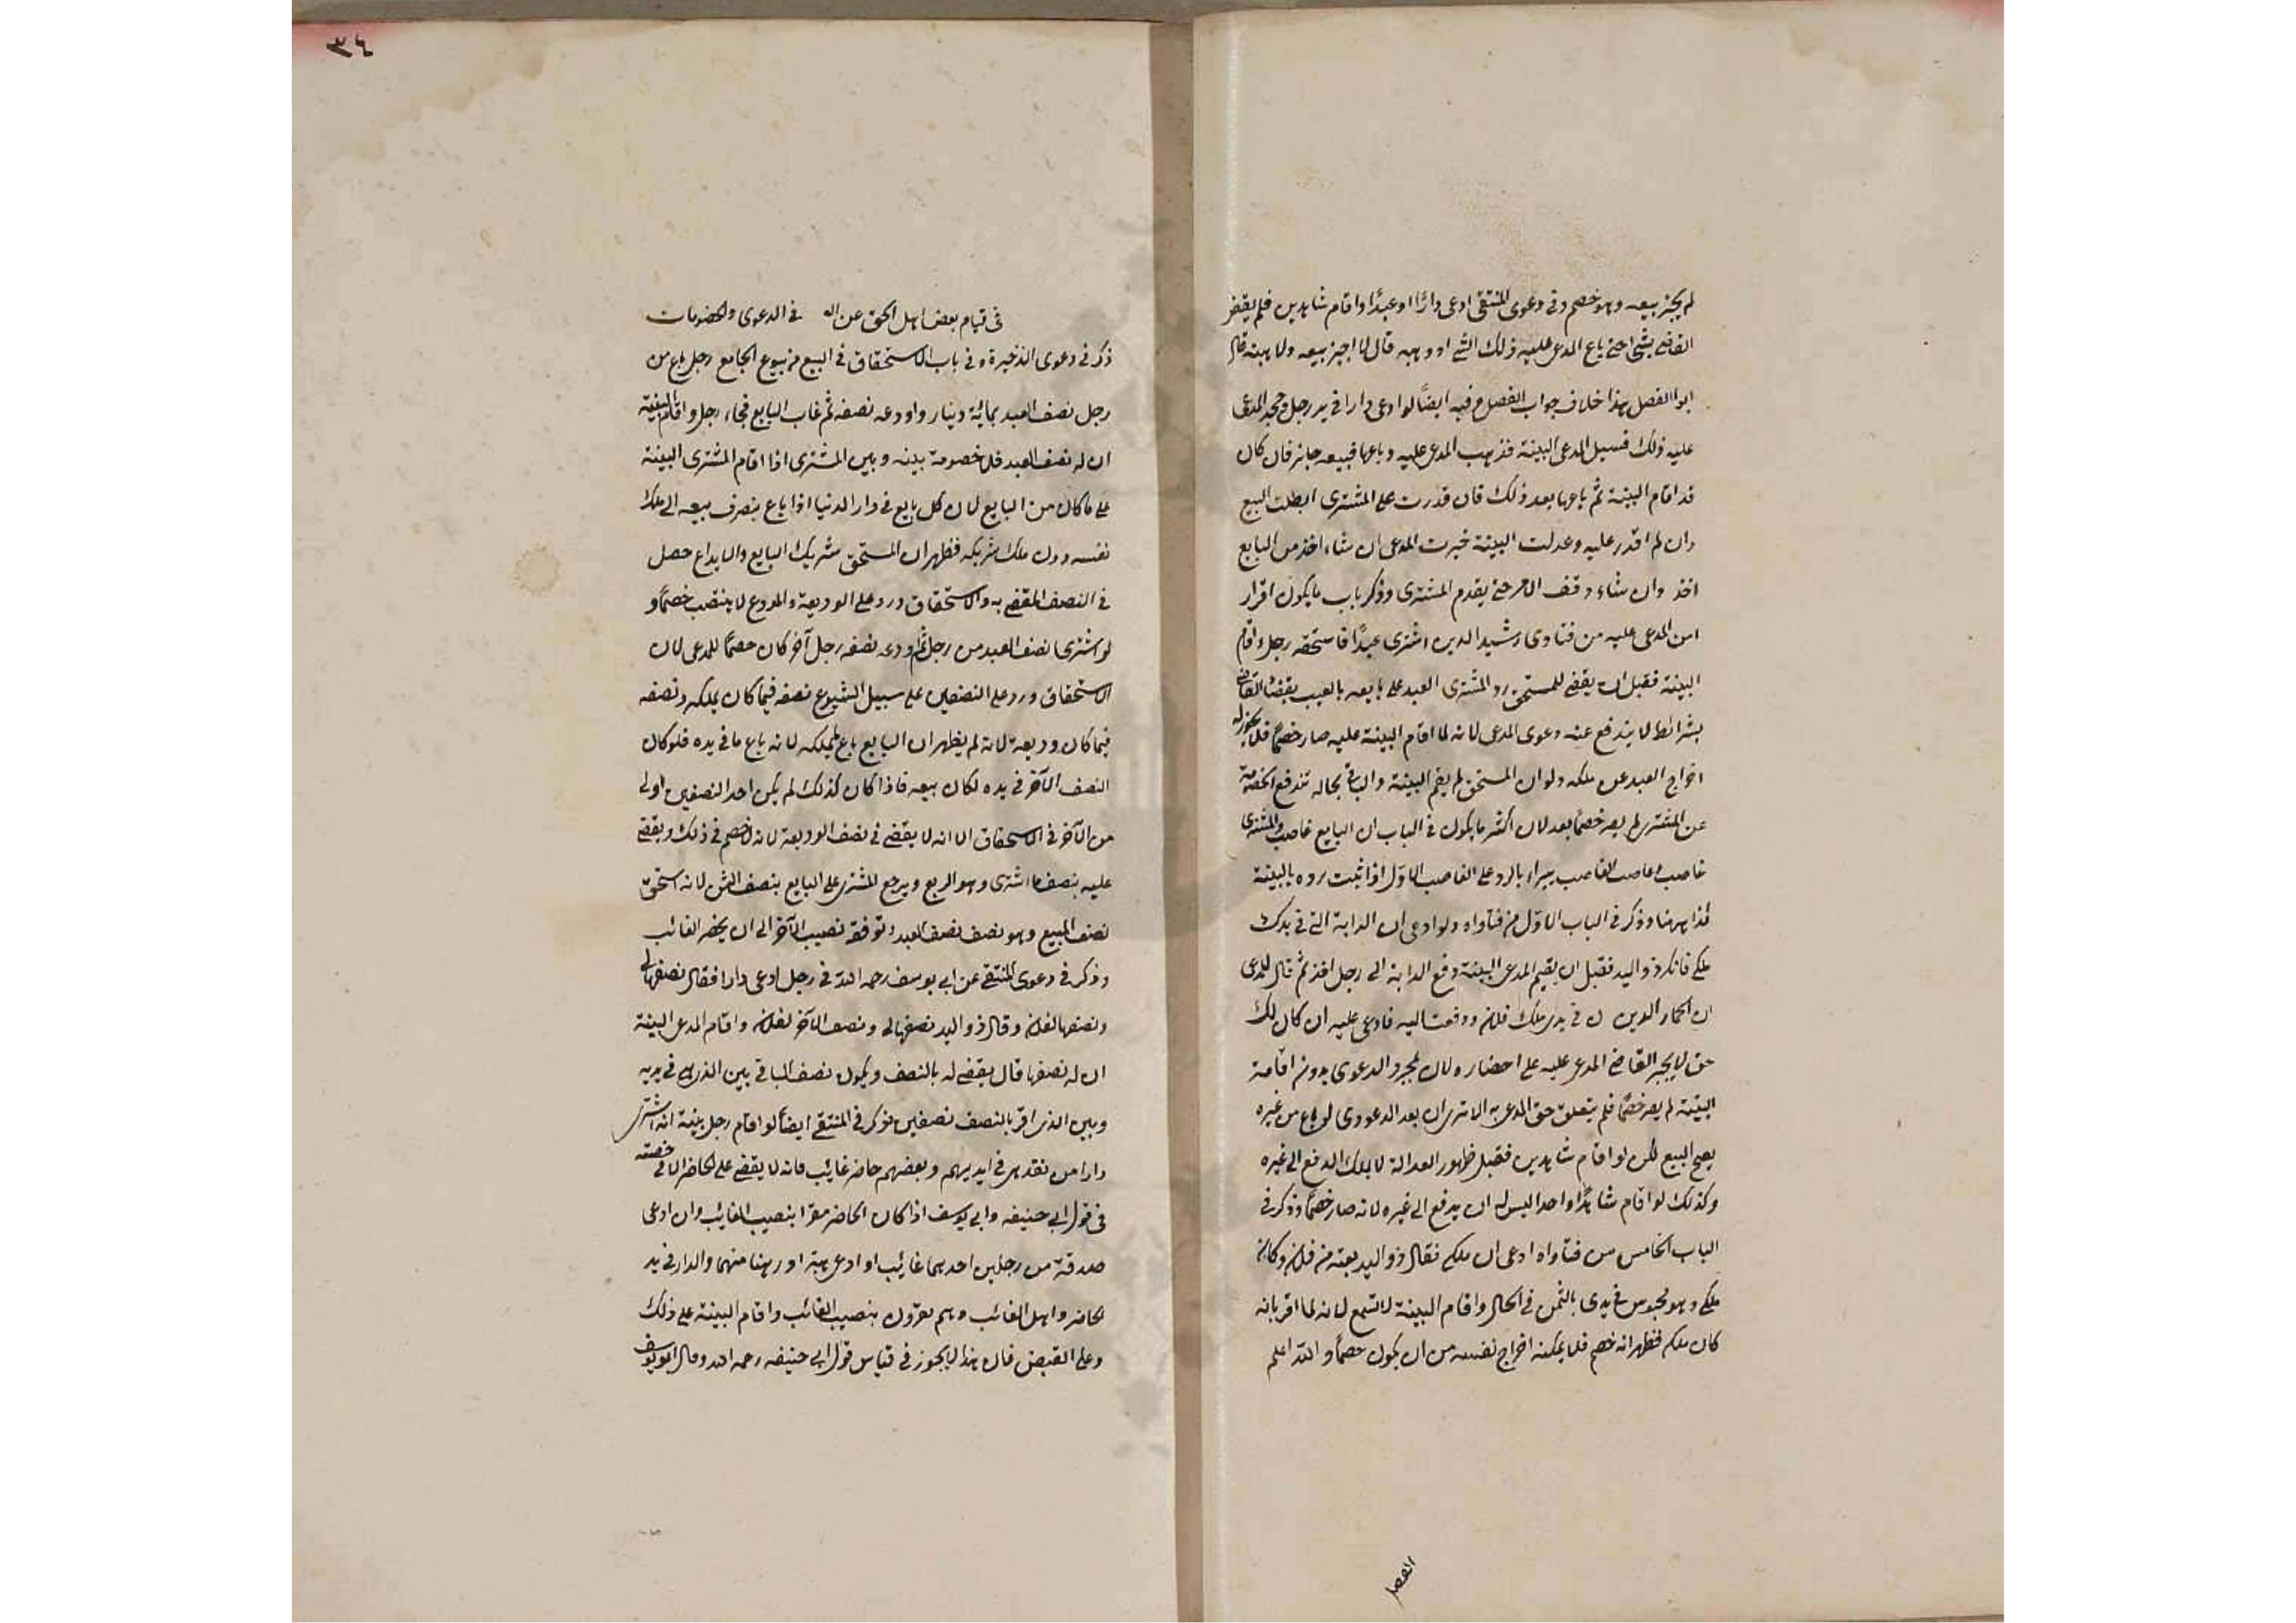 لم يجز بيعه وهو خصم وفي دعوى المنتقى ادعى دارًا او عبدًا واقام شاهدين فلم يقض
القاضي بشئ حتى باع المدعى عليه ذلك الشئ او وهبه قال لا اجيز بيعه ولا هبته قال
ابو الفضل هذا خلاف جواب الفصل م فيه ايضًا لو ادعى دارا في يد رجل وجحد المدعى
عليه ذلك فسيل المدعى البينة فذهب المدعى عليه وباعها فبيعه جائز فان كان
قد اقام البينة ثم باعها بعد ذلك فان قدرت على المشترى ابطلت البيع
وان لم اقدر عليه وعدلت البينة خيرت المدعى ان شاء اخذ من البايع
اخذ وان شاء وقف الامر حتى يقدم المشترى وذكر باب ما يكون اقرار
امن المدعى عليه من فتاوى رشيد الدين اشترى عبدًا فاستحقه رجل واقام
البينة فقبل ان يقضى للمستحق رد المشترى العبد على بايعه بالعيب بقضاء القاضى
بشرائط لا يندفع عنه دعوى المدعى لانه لما اقام البينة عليه صار خصمًا فلا يجوز له
اخراج العبد عن ملكه ولو ان المستحق لم يقم البينة والباقى بحاله تندفع الخصومة
عن المشترى لم يصر خصمًا بعد لان اكثر ما يكون في الباب ان البايع غاصب والمشترى
غاصب وغاصب الغاصب يبراء بالرد على الغاصب الاول اذا ثبت رده بالبينة
لذا ههنا وذكر في الباب الاول من فتاواه ولو ادعى ان الدابة التى في يدك
ملكى فانكر ذو اليد فقبل ان يقيم المدعى البينة دفع الدابة الى رجل اخذ ثم قال للمدعى
ان الحمار الدين ن في يدى ملك فلان ودفعت اليه فادعى عليه ان كان لك
حق لا يجبر القاضى المدعى عليه على احضاره لان بمجرد الدعوى بدون اقامة
البينة لم يصر خصمًا فلم يتعلق حق المدعى به الا ترى ان بعد الدعوى لو باع من غيره
يصح البيع لكن لو اقام شاهدين فقبل ظهور العدالة لا يملك الدفع الى غيره
وكذلك لو اقام شاهدًا واحدا ليس له ان يدفع الى غيره لانه صار خصمًا وذكر في
الباب الخامس من فتاواه ادعى ان ملكى فقال ذو اليد بعته من فلان وكان
ملكى وهو محبوس في يدى بالثمن في الحال واقام البينة لا تسمع لانه لما اقر بانه
كان ملكه فظهر انه خصم فلا يمكنه اخراج نفسه من ان يكون خصمًا والله اعلم
الفصل
٣٤
في قيام بعض اهل الحق عن اله في الدعوى والخصومات
ذكر في دعوى الذخيرة وفي باب الاستحقاق في البيع من بيوع الجامع رجل باع من
رجل نصف العبد بمائة دينار واودعه نصفه ثم غاب البايع فجاء رجل واقام البينة
ان له نصف العبد فلا خصومة بينه وبين المشترى اذا اقام المشترى البينة
على ما كان من البايع لان كل بايع في دار الدنيا اذا باع ينصرف بيعه الى ملك
نفسه دون ملك شريكه فظهر ان المستحق شريك البايع والايداع حصل
في النصف المقضى به والاستحقاق ورد على الوديعة والمودع لا ينتصب خصمًا و
لو اشترى نصف العبد من رجل ثم اودعه نصفه رجل آخر كان خصمًا للمدعى لان
الاستحقاق ورد على النصفين على سبيل الشيوع نصفه فيما كان يملكه ونصفه
فيما كان وديعة لانه لم يظهر ان البايع باع ما يملكه لانه باع ما في يده فلو كان
النصف الآخر في يده لكان بيعه فاذا كان كذلك لم يكن احد النصفين اولى
من الآخر في الاستحقاق الا انه لا يقضى في نصف الوديعة لانه لا خصم في ذلك ويقضى
عليه بنصف ما اشترى وهو الربع ويرجع المشترى على البايع بنصف الثمن لانه استحق
نصف المبيع وهو نصف نصف العبد وتوقف نصيب الآخر الى ان يحضر الغائب
وذكر في دعوى المنتقى عن ابى يوسف رحمه الله في رجل ادعى دارا فقال نصفها لى
ونصفها لفلان وقال ذو اليد نصفها لى ونصف الآخر لفلان واقام المدعى البينة
ان له نصفها قال يقضى له بالنصف ويكون نصف الباقى بين الذى هى في يديه
وبين الذى اقر بالنصف نصفين وذكر في المنتقى ايضًا لو اقام رجل بينة انه اشترى
دارا من نفر هى في ايديهم وبعضهم حاضر غايب فانه لا يقضى على الحاضر الا في حصته
في قول ابى حنيفه وابى يوسف اذا كان الحاضر مقرا بنصيب الغائب وان ادعى
صدقة من رجلين احدهما غايب او ادعى هبة او رهنا منهما والدار في يد
الحاضر واهل الغائب وهم مقرون بنصيب الغائب واقام البينة على ذلك
وعلى القبض فان هذا لا يجوز في قياس قول ابى حنيفه رحمه الله وقال ابو يوسف